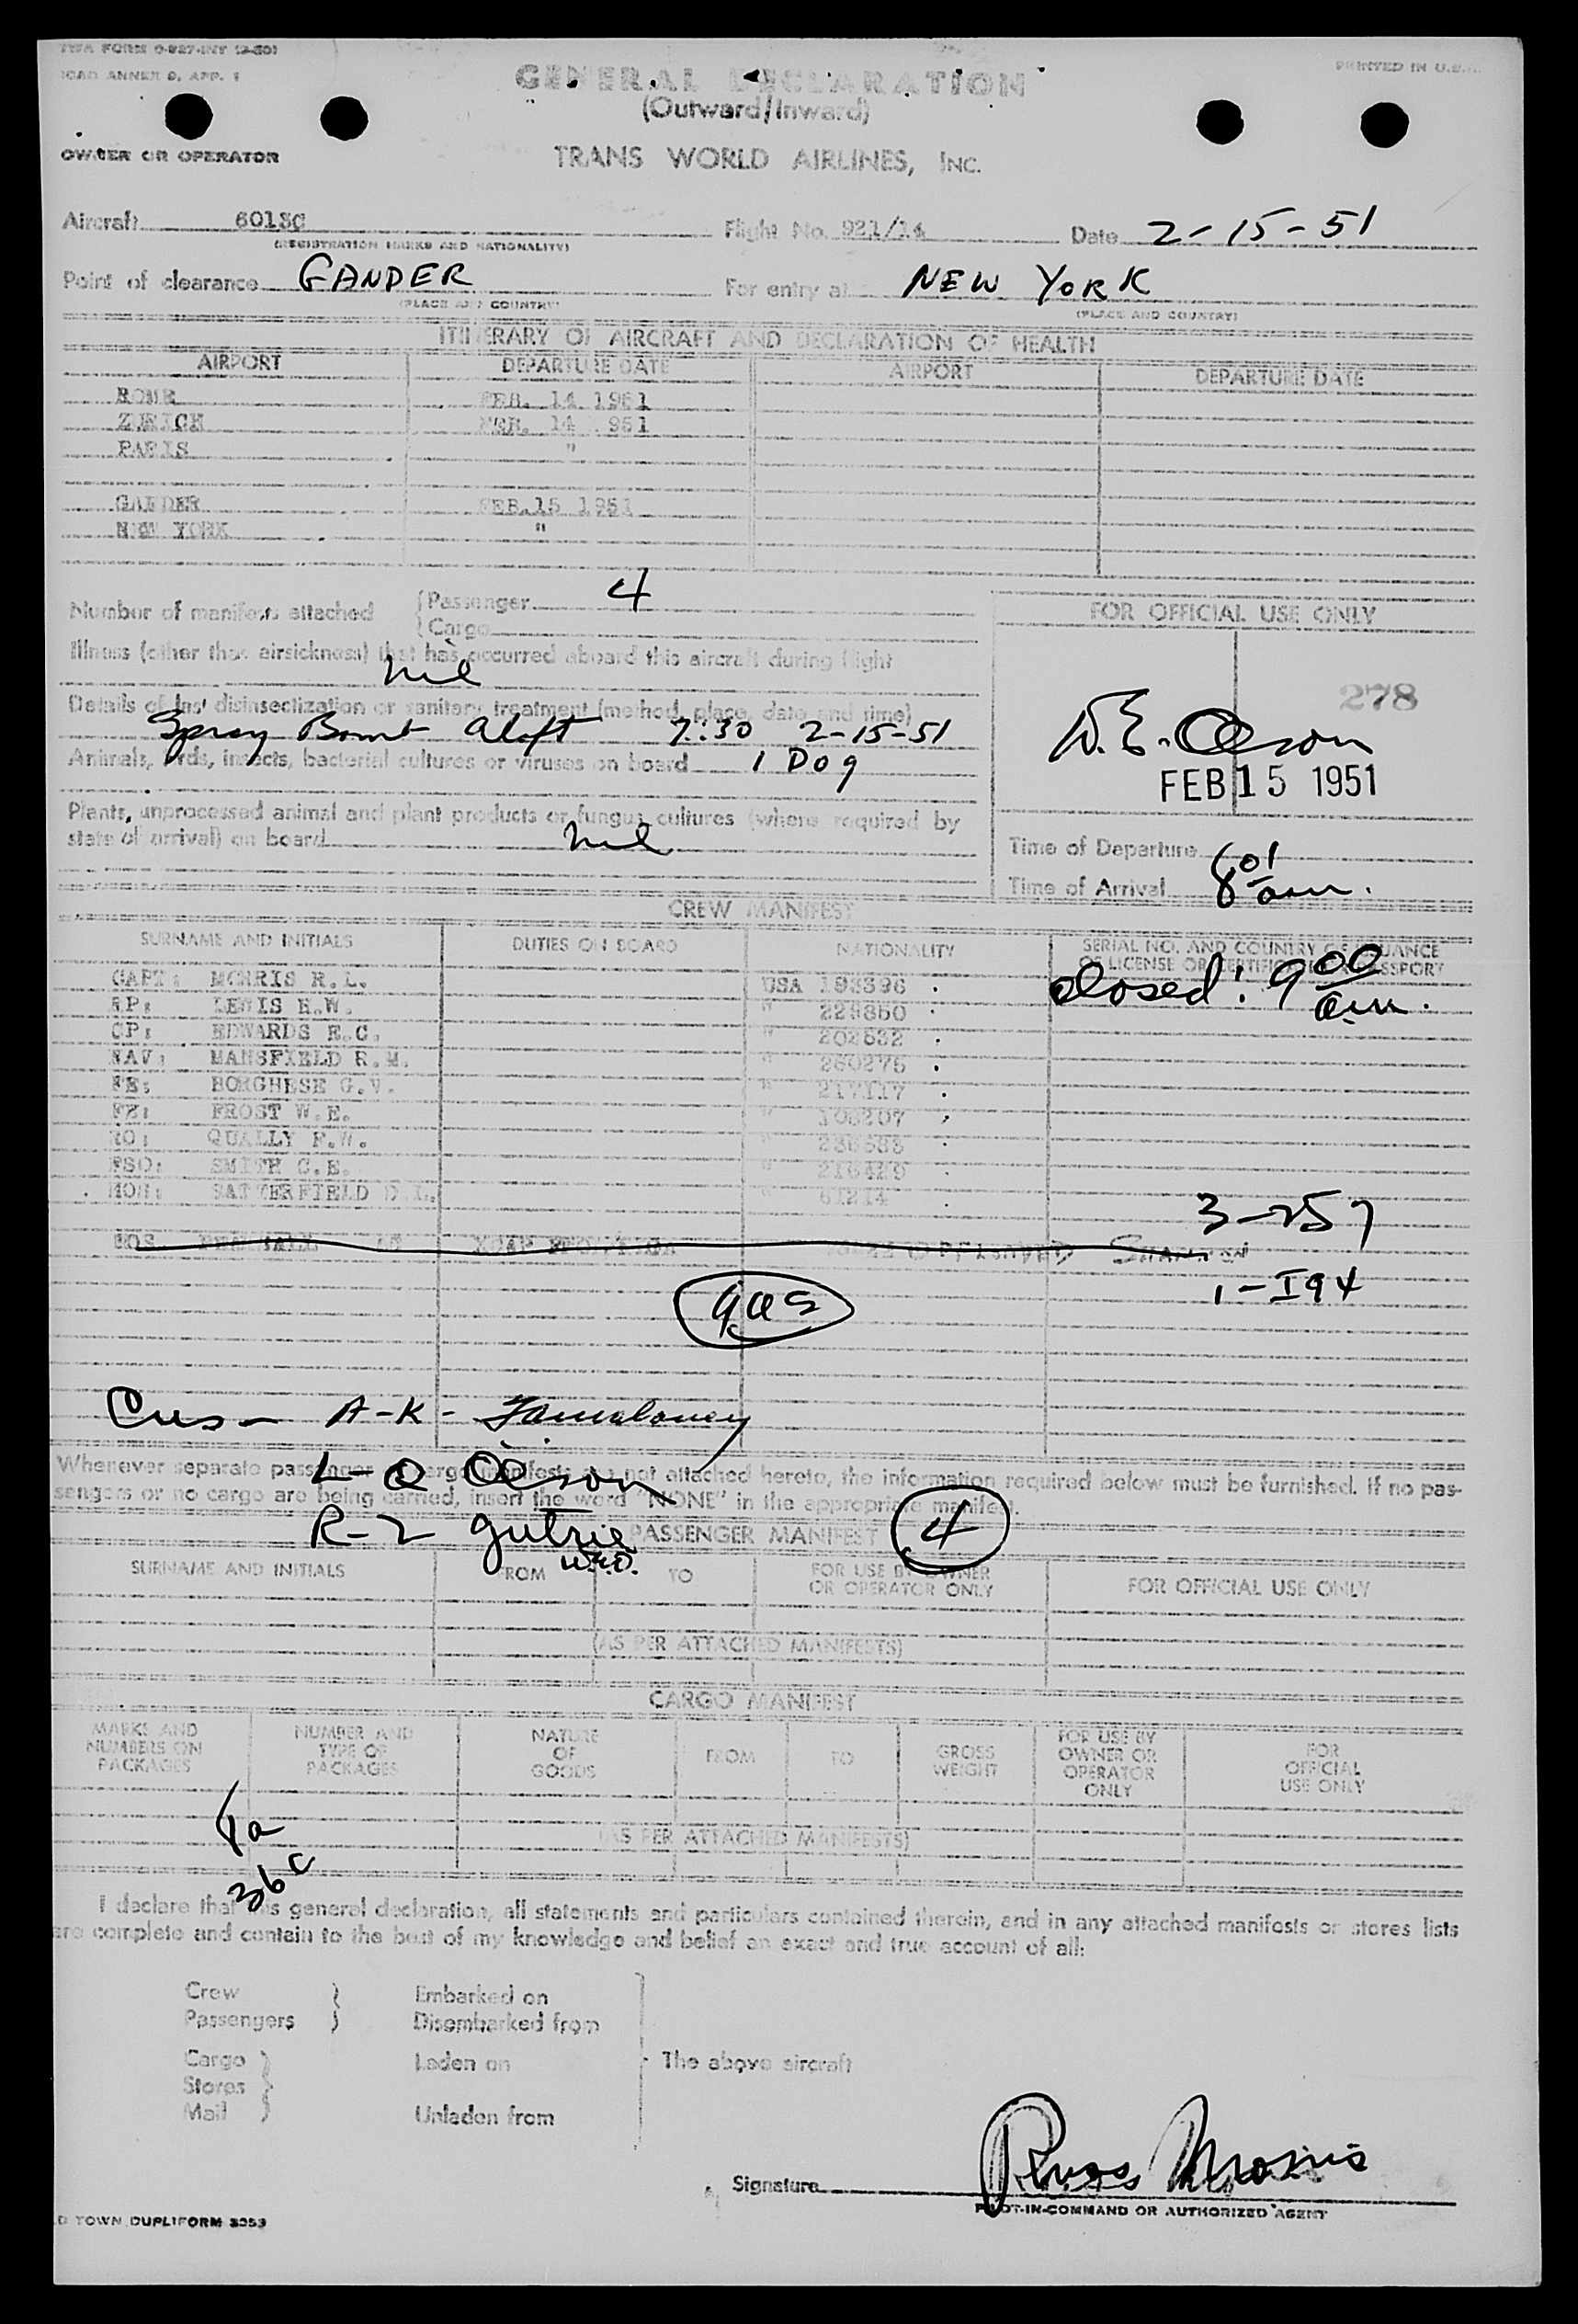 TWA FORM O-827-INT (2-50)
ICAO ANNEX 9, APP. 1
PRINTED IN U.S.
GENERAL DECLARATION
(Outward/Inward)
OWNER OR OPERATOR TRANS WORLD AIRLINES, INC.
Aircraft 6015C Flight No. 921/14 Date 2-15-51
(REGISTRATION MARKS AND NATIONALITY)
Point of clearance GANDER For entry at NEW YORK
(PLACE AND COUNTRY) (PLACE AND COUNTRY)
ITINERARY OF AIRCRAFT AND DECLARATION OF HEALTH
AIRPORT DEPARTURE DATE AIRPORT DEPARTURE DATE
ROME FEB. 14 1951
ZURICH FEB. 14 1951
PARIS "
GANDER FEB.15 1951
NEW YORK "
Number of manifests attached Passenger 4
Cargo
FOR OFFICIAL USE ONLY
Illness (other than airsickness) that has occurred aboard this aircraft during flight
nil
278
Details of last disinsectization or sanitary treatment (method, place, date and time)
Spray Bomb aloft 7:30 2-15-51
W.E. Olson
Animals, birds, insects, bacterial cultures or viruses on board 1 Dog
FEB 15 1951
Plants, unprocessed animal and plant products or fungus cultures (where required by
state of arrival) on board nil
Time of Departure
Time of Arrival 8 01 am.
CREW MANIFEST
SURNAME AND INITIALS DUTIES ON BOARD NATIONALITY SERIAL NO. AND COUNTRY OF ISSUANCE
OF LICENSE OR CERTIFICATE PASSPORT
Closed: 9 00 am.
CAPT: MORRIS R.L. USA 193396
LEWIS H.W. " 229850
CP: EDWARDS E.C. " 202632
NAV: MANSFIELD R.M. " 260275
FE: BORGHESE G.V. " 217117
FE: FROST W.E. " 103207
RO: QUALLY F.W. "
FSO: SMITH C.E. "
HOH: SATTERFIELD D.L. " 61214
3-257
HOS
1-I94
Cus- A-K-
L-Q Olson
Whenever separate passenger or cargo manifests are not attached hereto, the information required below must be furnished. If no pas-
sengers or no cargo are being carried, insert the word "NONE" in the appropriate manifest.
R-Z Gutrie W.E.O.
PASSENGER MANIFEST 4
SURNAME AND INITIALS FROM TO FOR USE BY OWNER OR OPERATOR ONLY FOR OFFICIAL USE ONLY
(AS PER ATTACHED MANIFESTS)
CARGO MANIFEST
MARKS AND NUMBERS ON PACKAGES NUMBER AND TYPE OF PACKAGES NATURE OF GOODS FROM TO GROSS WEIGHT FOR USE BY OWNER OR OPERATOR ONLY FOR OFFICIAL USE ONLY
8a
(AS PER ATTACHED MANIFESTS)
36c
I declare that this general declaration, all statements and particulars contained therein, and in any attached manifests or stores lists
are complete and contain to the best of my knowledge and belief an exact and true account of all:
Crew Embarked on
Passengers Disembarked from
Cargo Laden on The above aircraft
Stores
Mail Unladen from
Signature Russ Morris
PILOT-IN-COMMAND OR AUTHORIZED AGENT
D TOWN DUPLIFORM 3053